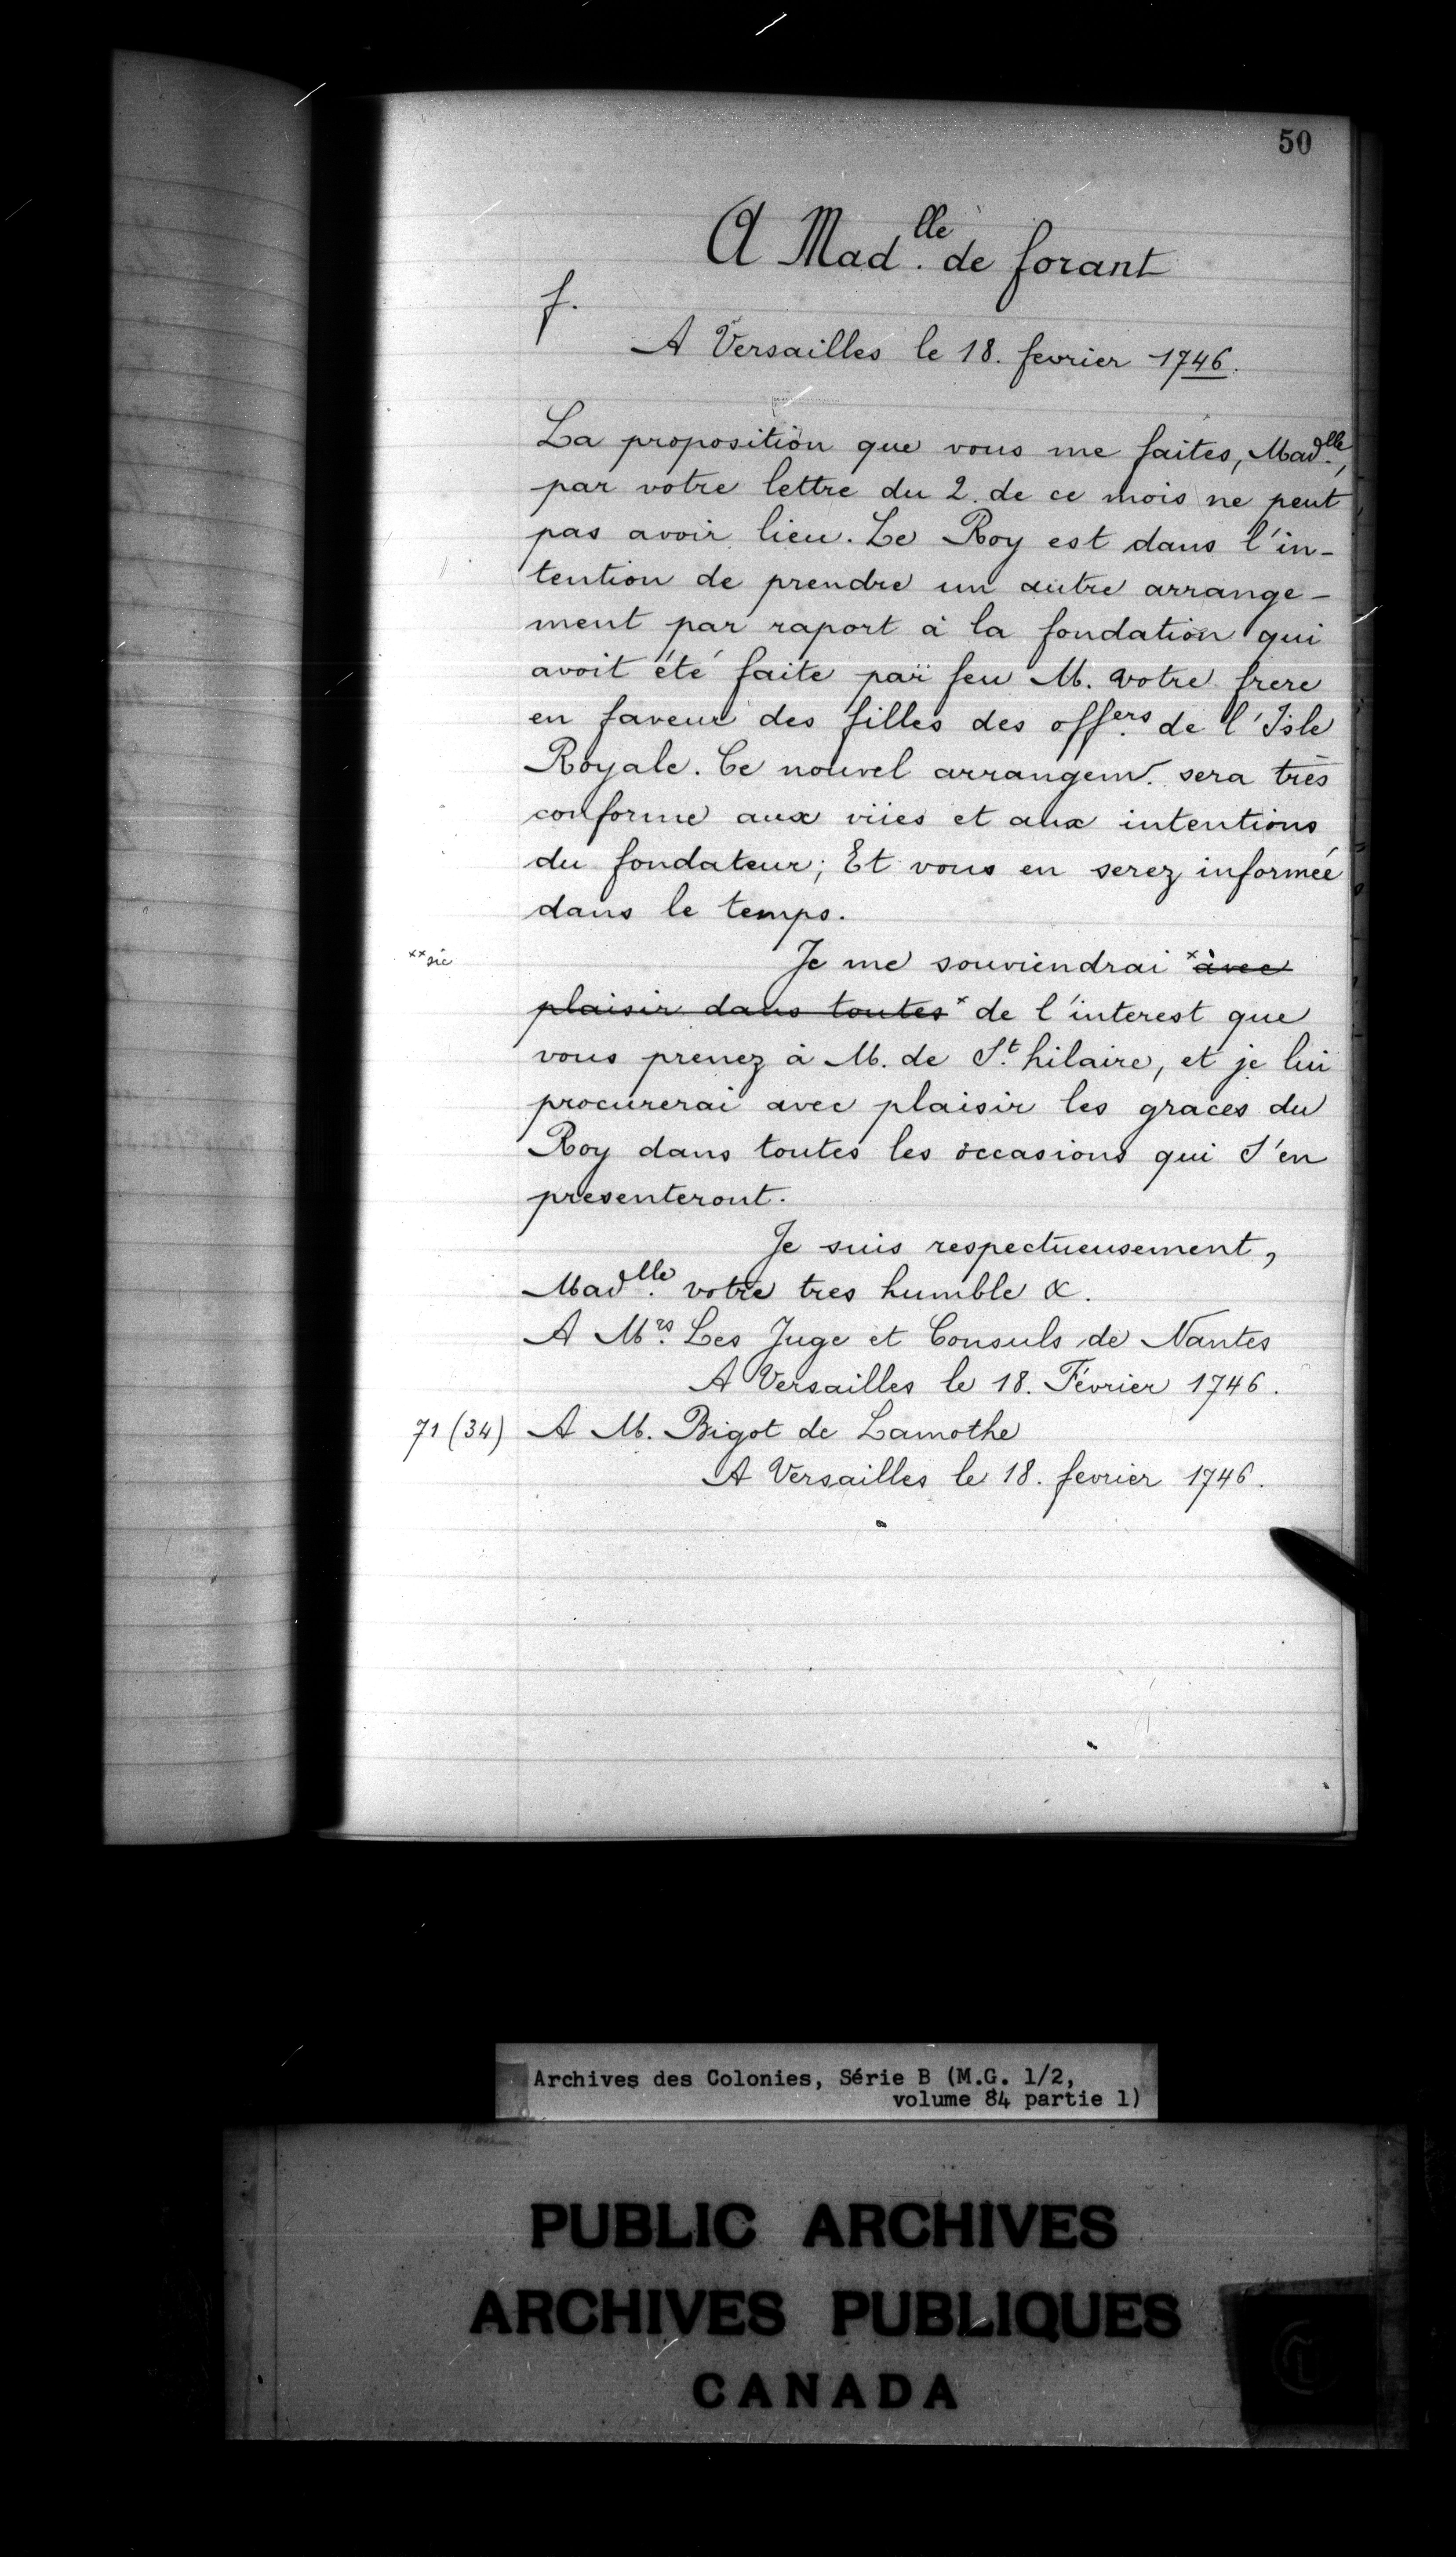 50
A Mad.lle de forant
f.
A Versailles le 18. fevrier 1746.
La proposition que vous me faites, Mad.lle,
par votre lettre du 2. de ce mois ne peut
pas avoir lieu. Le Roy est dans l'in-
tention de prendre un autre arrange-
ment par raport à la fondation qui
avoit été faite par feu M. votre frere
en faveur des filles des off.ers de l'Isle
Royale. Ce nouvel arrangem.t sera très
conforme aux vües et aux intentions
du fondateur; Et vous en serez informée
dans le temps.
xx sic
Je me souviendrai x avec
plaisir dans toutes x de l'interest que
vous prenez à M. de S.t hilaire, et je lui
procurerai avec plaisir les graces du
Roy dans toutes les occasions qui S'en
presenteront.
Je suis respectueusement,
Mad.lle votre tres humble &.
A M.rs Les Juge et Consuls de Nantes
A Versailles le 18. Février 1746.
71 (34) A M. Bigot de Lamothe
A Versailles le 18. fevrier 1746.
Archives des Colonies, Série B (M.G. 1/2,
volume 84 partie 1)
PUBLIC ARCHIVES
ARCHIVES PUBLIQUES
CANADA